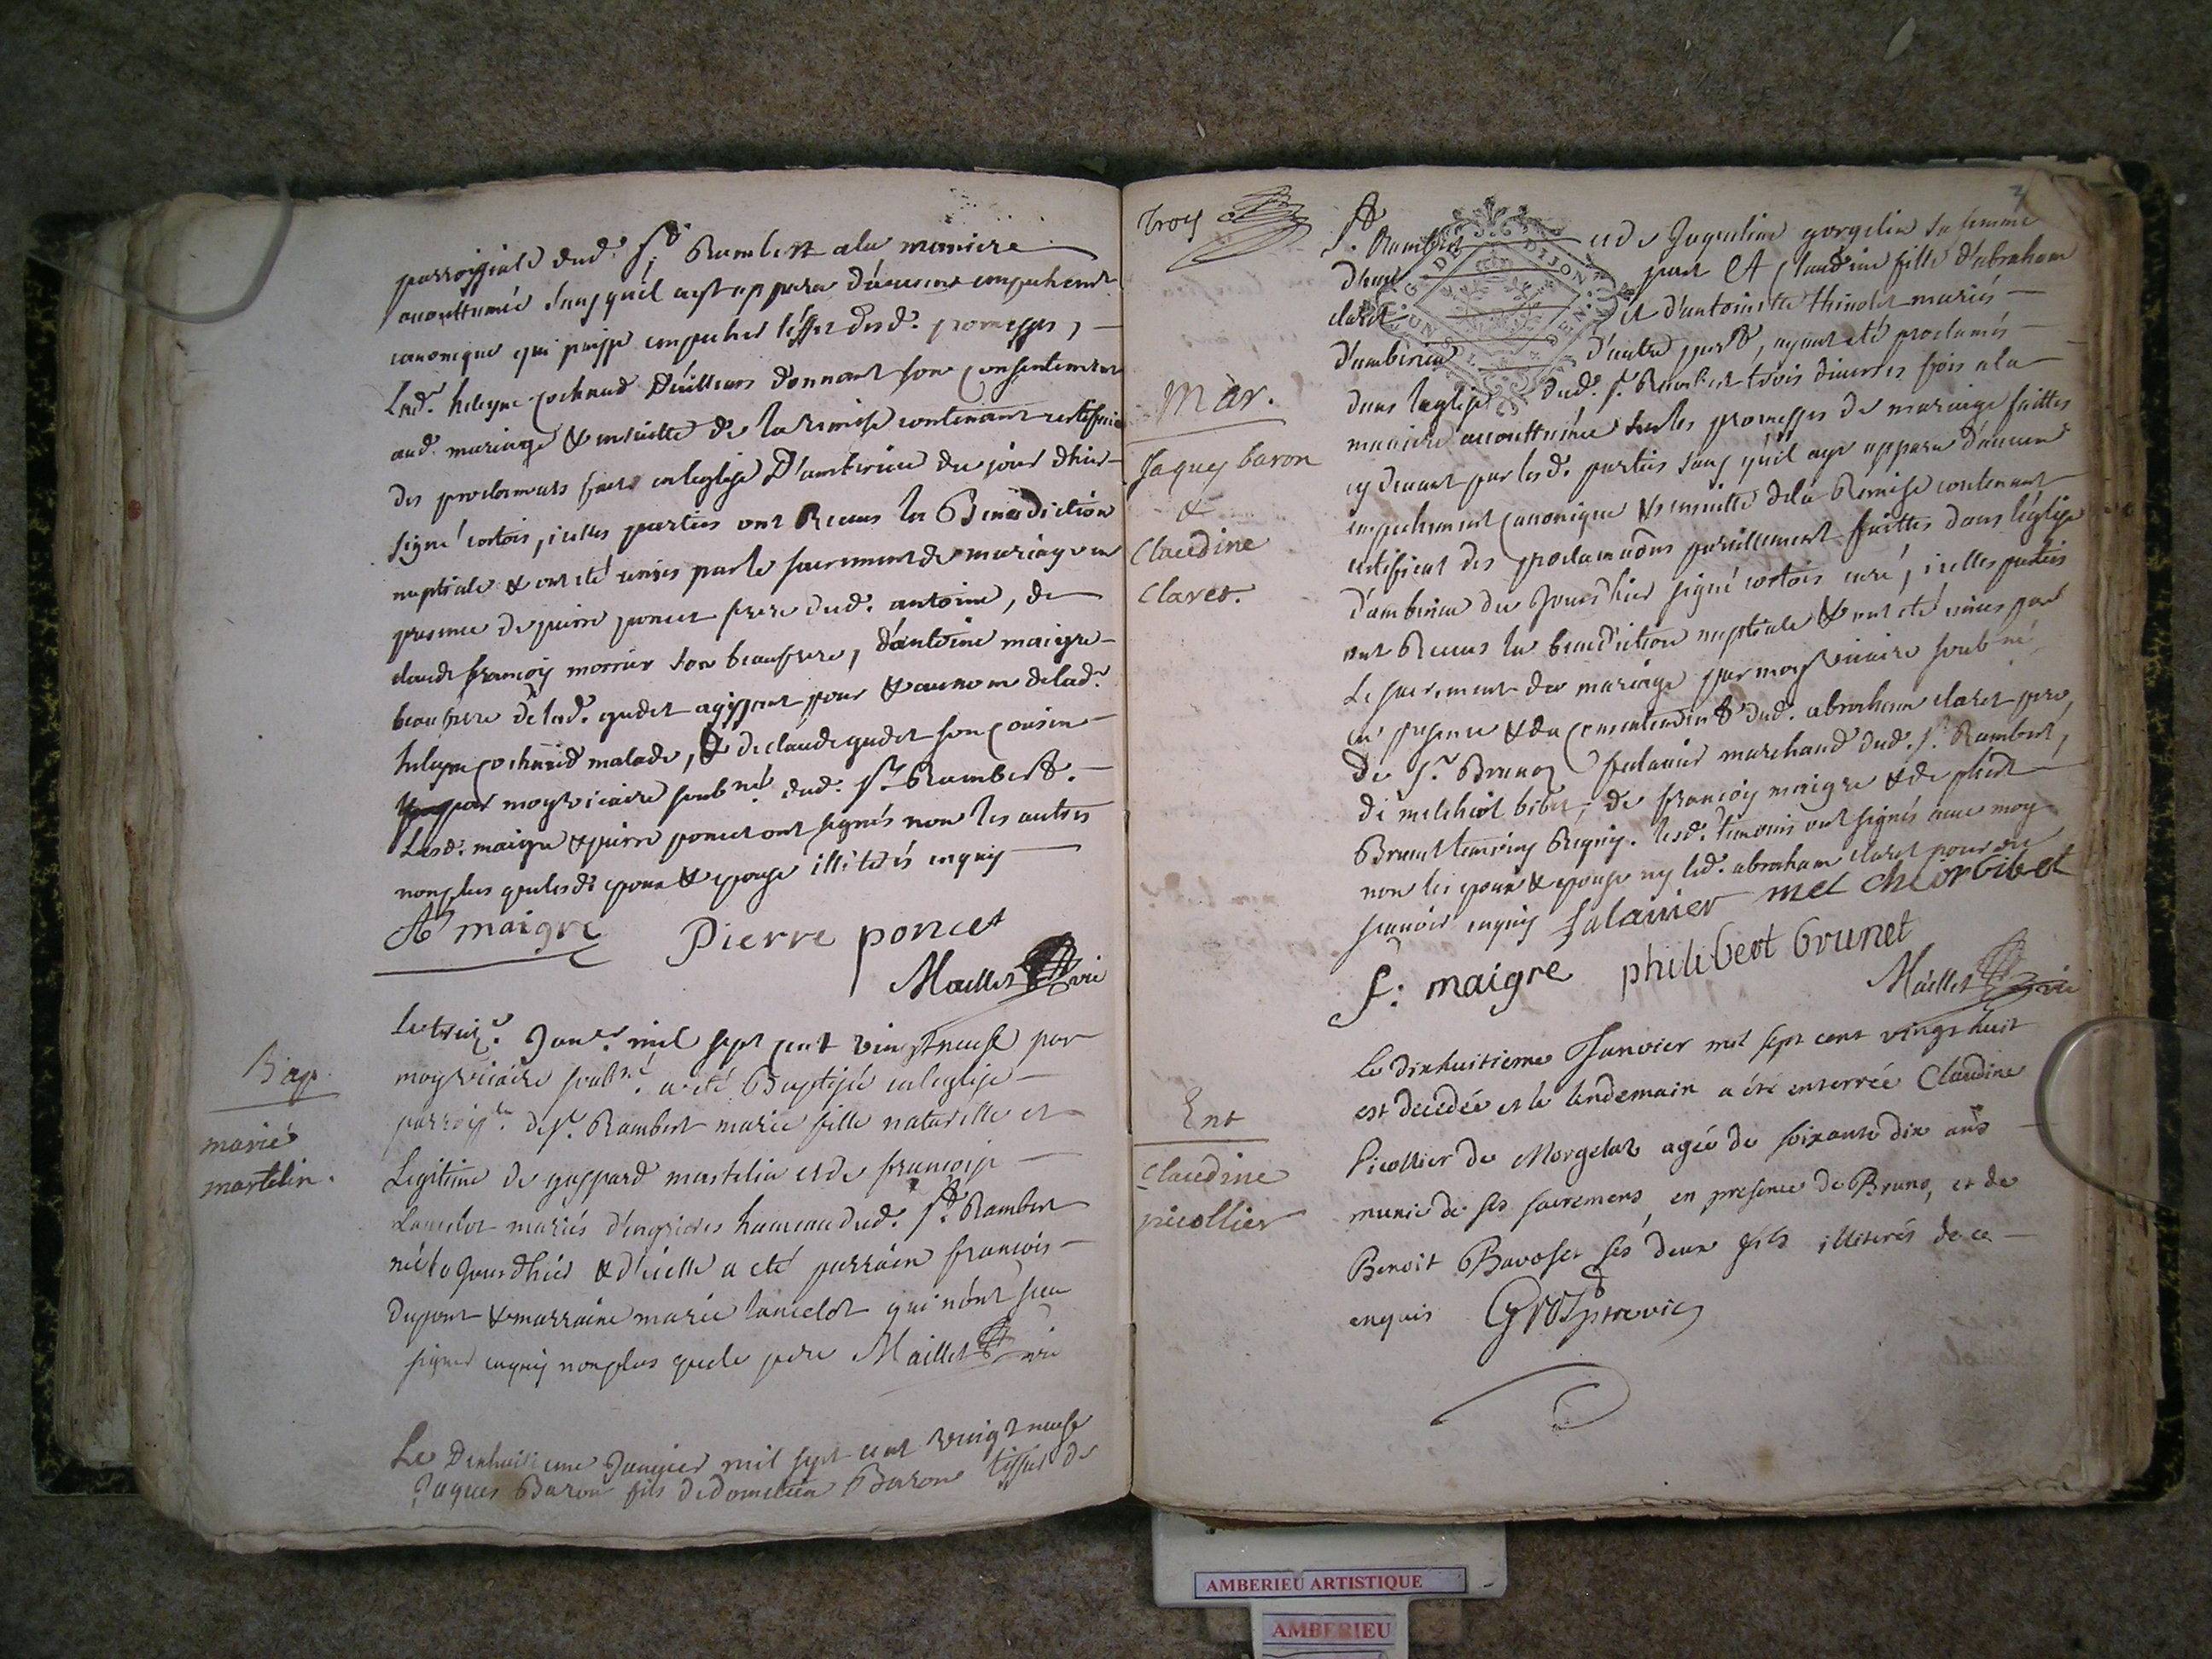 parroissiale dud. St. Rambert a la maniere
accouttumée sans quil ayt apparu d'aucune empechemt
canonique qui puisse empecher l'effet desd. promesses,
Lad. heleyne cochaud d'ailleurs donnant son consentement
aud. mariage & ensuitte de la remise contenant certificat
des proclamats faits en leglise D'amberieu du jour d'hier
signé cortois, icelles parties ont Receus la Benediction
nuptiale & ont eté unies par le sacrement de mariage en
presence de pierre poncet frere dud. antoine, de
claude françois monier son beaufrere, d'antoine maigre
beaufrere de lad. gudet agissant pour & au nom de lad.
heleyne cochaud malade, & de claude gudet son cousin
par moy vicaire soubné. dud. St. Rambert.
Lesd. maigre & pierre poncet ont signés non les autres
nonplus que lesd. epoux & epouse illiterés enquis
At maigre Pierre poncet
Maillet vic
Bap.
marie
martelin.
Le treize. Janer. mil sept cent vingt neuf par
moy vicaire soubné. a eté Baptisée en leglise
parroissle. de St. Rambert marie fille naturelle et
Legitime de gaspard martelin et de françoise
Lancelot mariés d'angrieres hameau dud. St. Rambert
née le jour d'hier & d'icelle a eté parrain françois
Dupont & marraine marie lancelot qui n'ont sceu
signer enquis nonplus que le pere Maillet vic
Le Dixhuitieme Janvier mil sept cent vingt neuf
Jaques Baron fils de domitien Baron tissier de
Troys
3
St. Rambert et de Jaqueline gorgelin sa femme
d'une part Et Claudine fille d'abraham
claret et d'antoinette thinolet mariés
d'amberieu d'autre part, ayant eté proclamés
dans leglise dud. St. Rambert trois diverses fois a la
maniere accouttumée sur les promesses de mariage faittes
cy devant par lesd. parties sans quil aye apparu d'aucun
empechement canonique & ensuitte de la Remise contenant
certificat des proclamaõns pareillement faittes dans leglise
d'amberieu du Jour d'hier signé cortois curé, icelles parties
ont Receus la benediction nuptiale & ont eté unies par
Le sacrement de mariage par moy vicaire soubné
en presence & du consentement dud. abraham claret pere,
de Sr. Brunos falavier marchand dud. St. Rambert,
de melchiot bibet, de françois maigre & de philibt
Brunet temoins Requis. lesd. temoins ont signés avec moy
non les epoux & epouse ny led. abraham claret pour ne
sçavoir enquis falavier melchior bibet
f: maigre philibert brunet
Maillet vic
Mar.
Jaques baron
&
Claudine
Claret.
Le dixhuitieme Janvier mil sept cent vingt huit
est decedée et le lendemain a été enterrée Claudine
Picollier de Morgelas agée de soixante dix ans
munie de ses sacremens, en presence de Bruno, et de
Benoit Bavoset ses deux fils illiterés de ce
enquis Gros ptre vic
Ent
Claudine
picollier
G. DE DIJON
AMBERIEU ARTISTIQUE
AMBERIEU